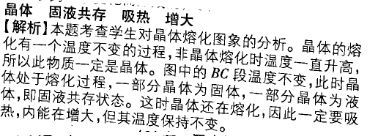 晶体 固液共存 吸热 增大
【解析】本题考查学生对晶体熔化图象的分析。晶体的熔
化有一个温度不变的过程,非晶体熔化时温度一直升高,
所以此物质一定是晶体。图中的BC段温度不变,此时晶
体处于熔化过程,一部分晶体为固体,一部分晶体为液
体,即固液共存状态。这时晶体还在熔化,因此一定要吸
热,内能在增大,但其温度保持不变。